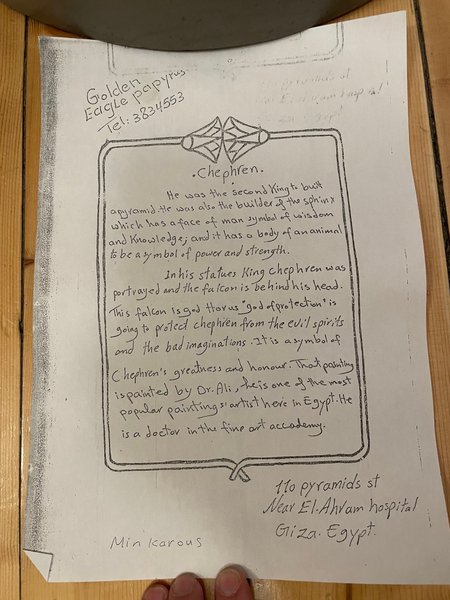 Golden
Eagle papyrus
Tel: 3834553
.Chephren.
He was the second King to built
apyramid. He was also the builder of the sphinx
which has a face of man symbol of wisdom
and Knowledge; and it has a body of an animal
to be a symbol of power and strength.
In his statues King chephren was
portrayed and the falcon is behind his head.
This falcon is god Horus "god of protection" is
going to protect chephren from the evil spirits
and the bad imaginations. It is a symbol of
Chephren's greatness and honour. That painting
is painted by Dr. Ali, he is one of the most
popular paintings' artist here in Egypt. He
is a doctor in the fine art accademy.
110 pyramids st
Near El-Ahram hospital
Giza. Egypt.
Min Karous